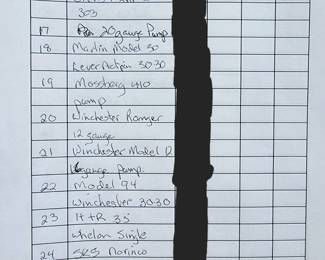 303
17 20gauge Pump
18 Marlin Model 30
Lever Action 30-30
19 Mossberg 410
pump
20 Winchester Ranger
12 gauge
21 Winchester Model 12
16gauge Pump.
22 Model 94
Winchester 30-30
23 H+R 35
Whelan Single
24 SKS Norinco